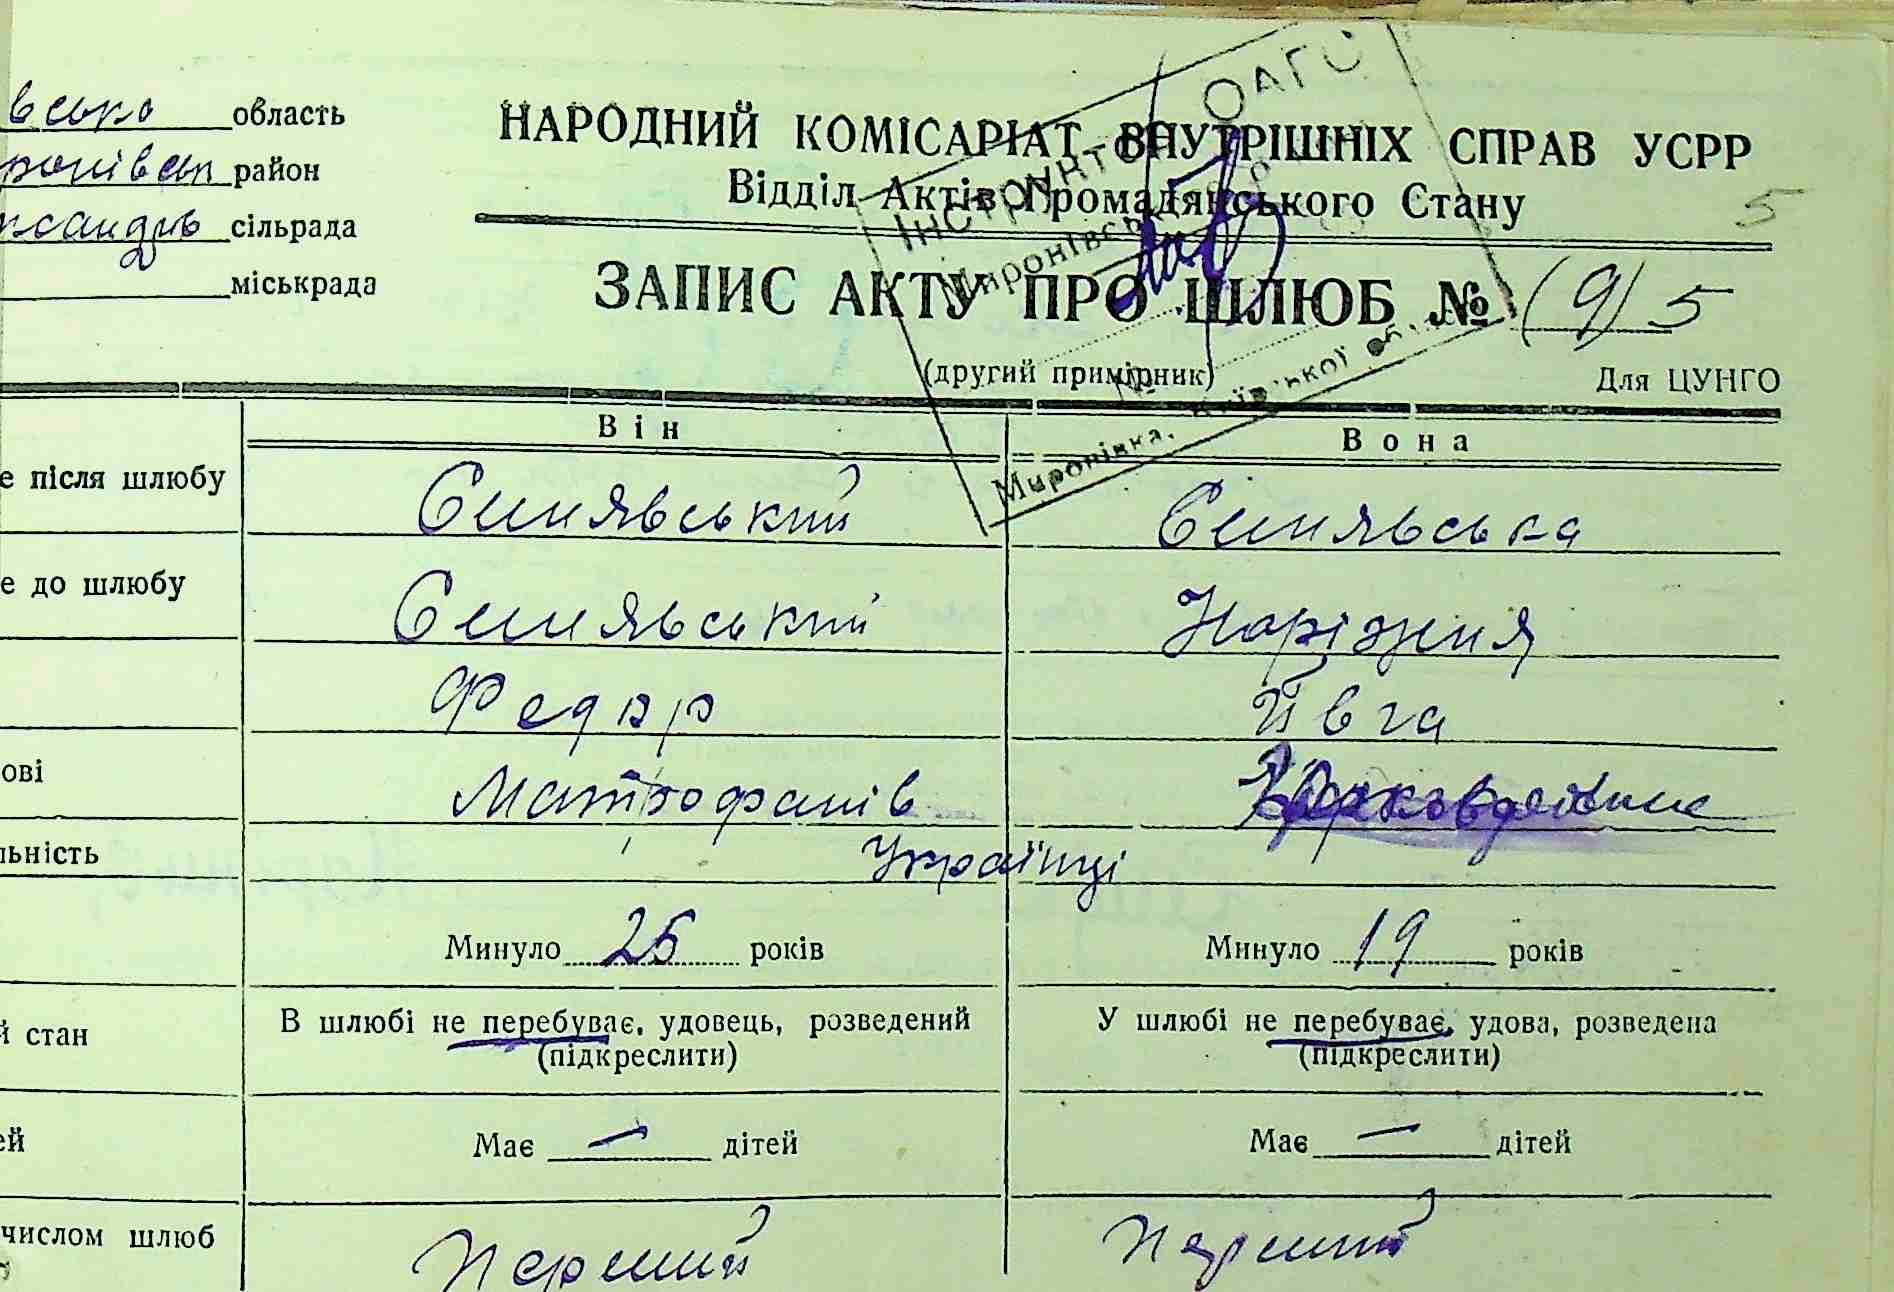 область
район
сільрада
міськрада
НАРОДНИЙ КОМІСАРІАТ ВНУТРІШНІХ СПРАВ УСРР
Відділ Актів Громадянського Стану
5
ЗАПИС АКТУ ПРО ШЛЮБ № (9) 5
(другий примірник)
Для ЦУНГО
Інструктор ОАГС
Миронівка, Київської
Він Вона
е після шлюбу Синявський Синявська
е до шлюбу Синявський Наріжня
Федор Ївга
ові Митрофанів
льність Українці
Минуло 25 років Минуло 19 років
й стан В шлюбі не перебуває, удовець, розведений У шлюбі не перебуває, удова, розведена
(підкреслити) (підкреслити)
ей Має — дітей Має — дітей
числом шлюб Перший Перший